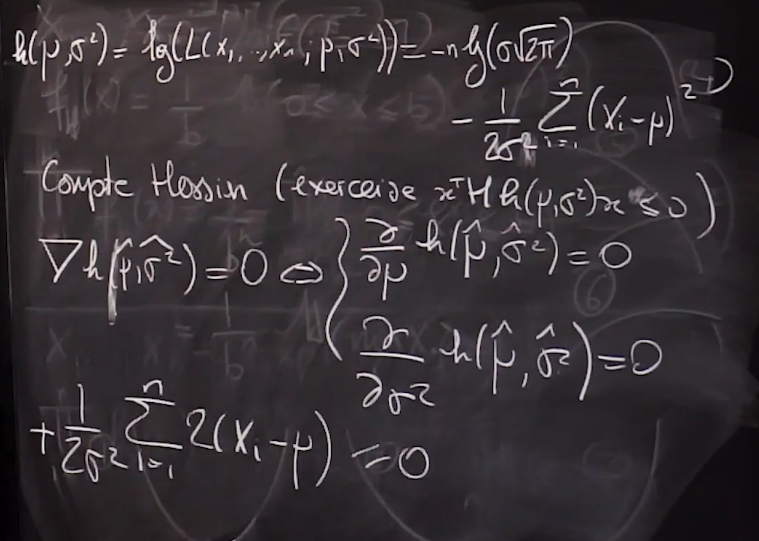 h(μ,σ²) = lg(L(x₁,..,xₙ; μ,σ²)) = -n lg(σ√2π)
- 1/2σ² Σᵢ₌₁ⁿ (Xᵢ-μ)²
Compte Hessin (exerceise xᵀHh(μ,σ²)x ≤ 0)
∇h(μ̂,σ̂²) = 0 ⇔ { ∂/∂μ h(μ̂,σ̂²) = 0
∂/∂σ² h(μ̂,σ̂²) = 0
+ 1/2σ² Σᵢ₌₁ⁿ 2(Xᵢ-μ) = 0